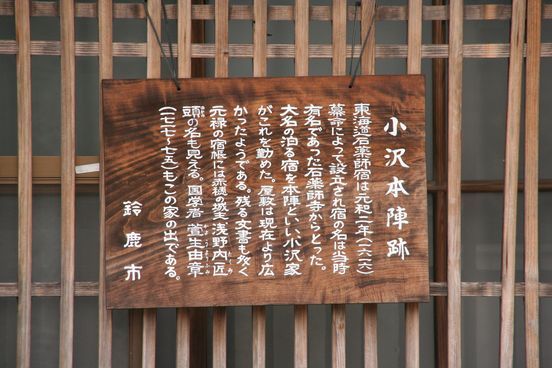 小沢本陣跡
東海道石薬師宿は元和二年(一六一六)
幕命によって設立され宿の名は当時
有名であった石薬師寺からとった。
大名の泊る宿を本陣といい、小沢家
がこれを勤めた。屋敷は現在より広
かったようである。残る文書も多く
元禄の宿帳には赤穂の城主 浅野内匠
頭の名も見える。国学者 萱生由章
(一七一七〜七五)もこの家の出である。
鈴鹿市